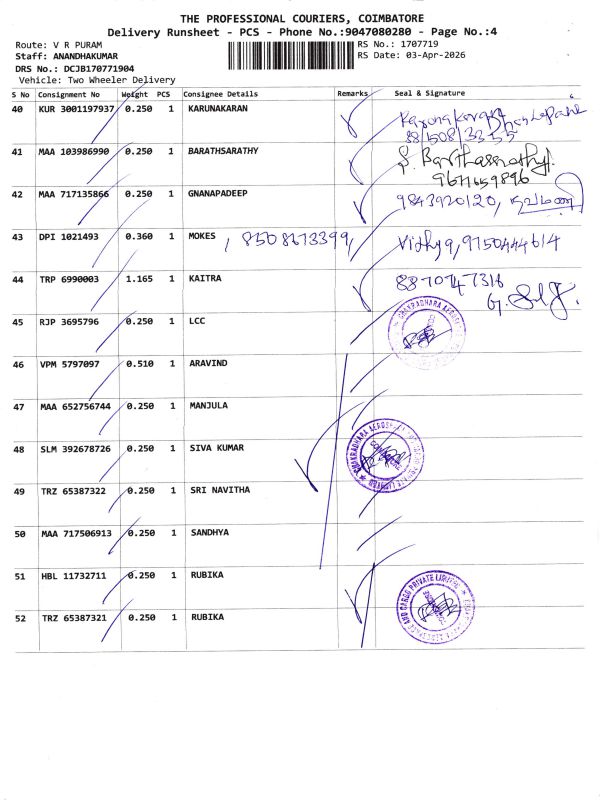 THE PROFESSIONAL COURIERS, COIMBATORE
Delivery Runsheet - PCS - Phone No.:9047080280 - Page No.:4
Route: V R PURAM
RS No.: 1707719
Staff: ANANDHAKUMAR
RS Date: 03-Apr-2026
DRS No.: DCJB170771904
Vehicle: Two Wheeler Delivery
S No Consignment No Weight PCS Consignee Details Remarks Seal & Signature
40 KUR 3001197937 0.250 1 KARUNAKARAN
41 MAA 103986990 0.250 1 BARATHSARATHY S. Barthasarathy.
9677659896
42 MAA 717135866 0.250 1 GNANAPADEEP 9843920120,
43 DPI 1021493 0.360 1 MOKES , 8508673399, Vithya, 9750444614
44 TRP 6990003 1.165 1 KAITRA 8870747316
45 RJP 3695796 0.250 1 LCC
46 VPM 5797097 0.510 1 ARAVIND
47 MAA 652756744 0.250 1 MANJULA
48 SLM 392678726 0.250 1 SIVA KUMAR
49 TRZ 65387322 0.250 1 SRI NAVITHA
50 MAA 717506913 0.250 1 SANDHYA
51 HBL 11732711 0.250 1 RUBIKA
52 TRZ 65387321 0.250 1 RUBIKA